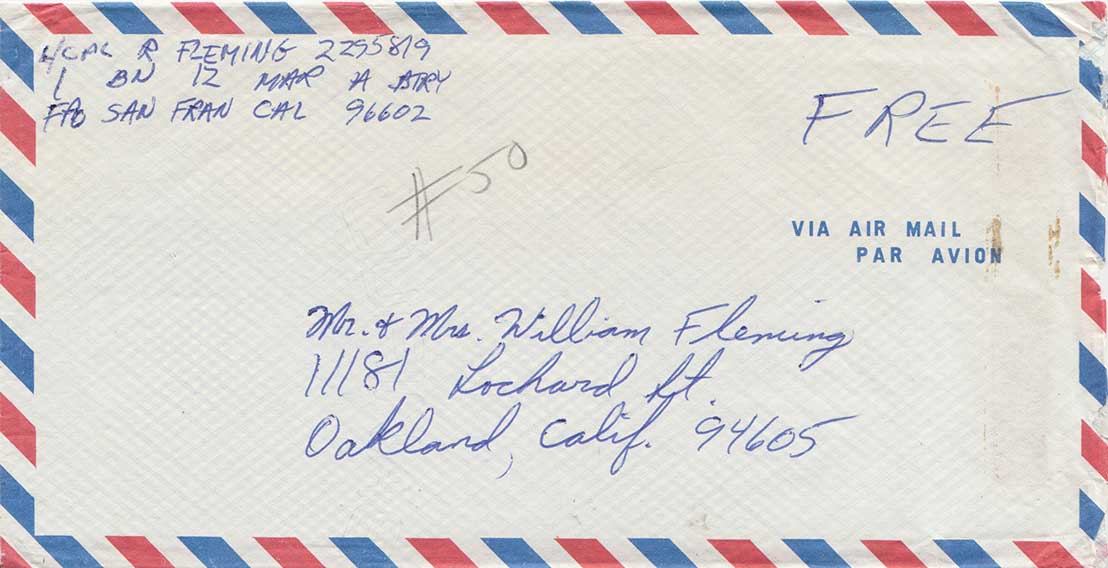 L/CPL R FLEMING 2295819
1 BN 12 MAR A BTRY
FPO SAN FRAN CAL 96602
FREE
#50
VIA AIR MAIL
PAR AVION
Mr. & Mrs. William Fleming
11181 Lochard St.
Oakland, Calif. 94605